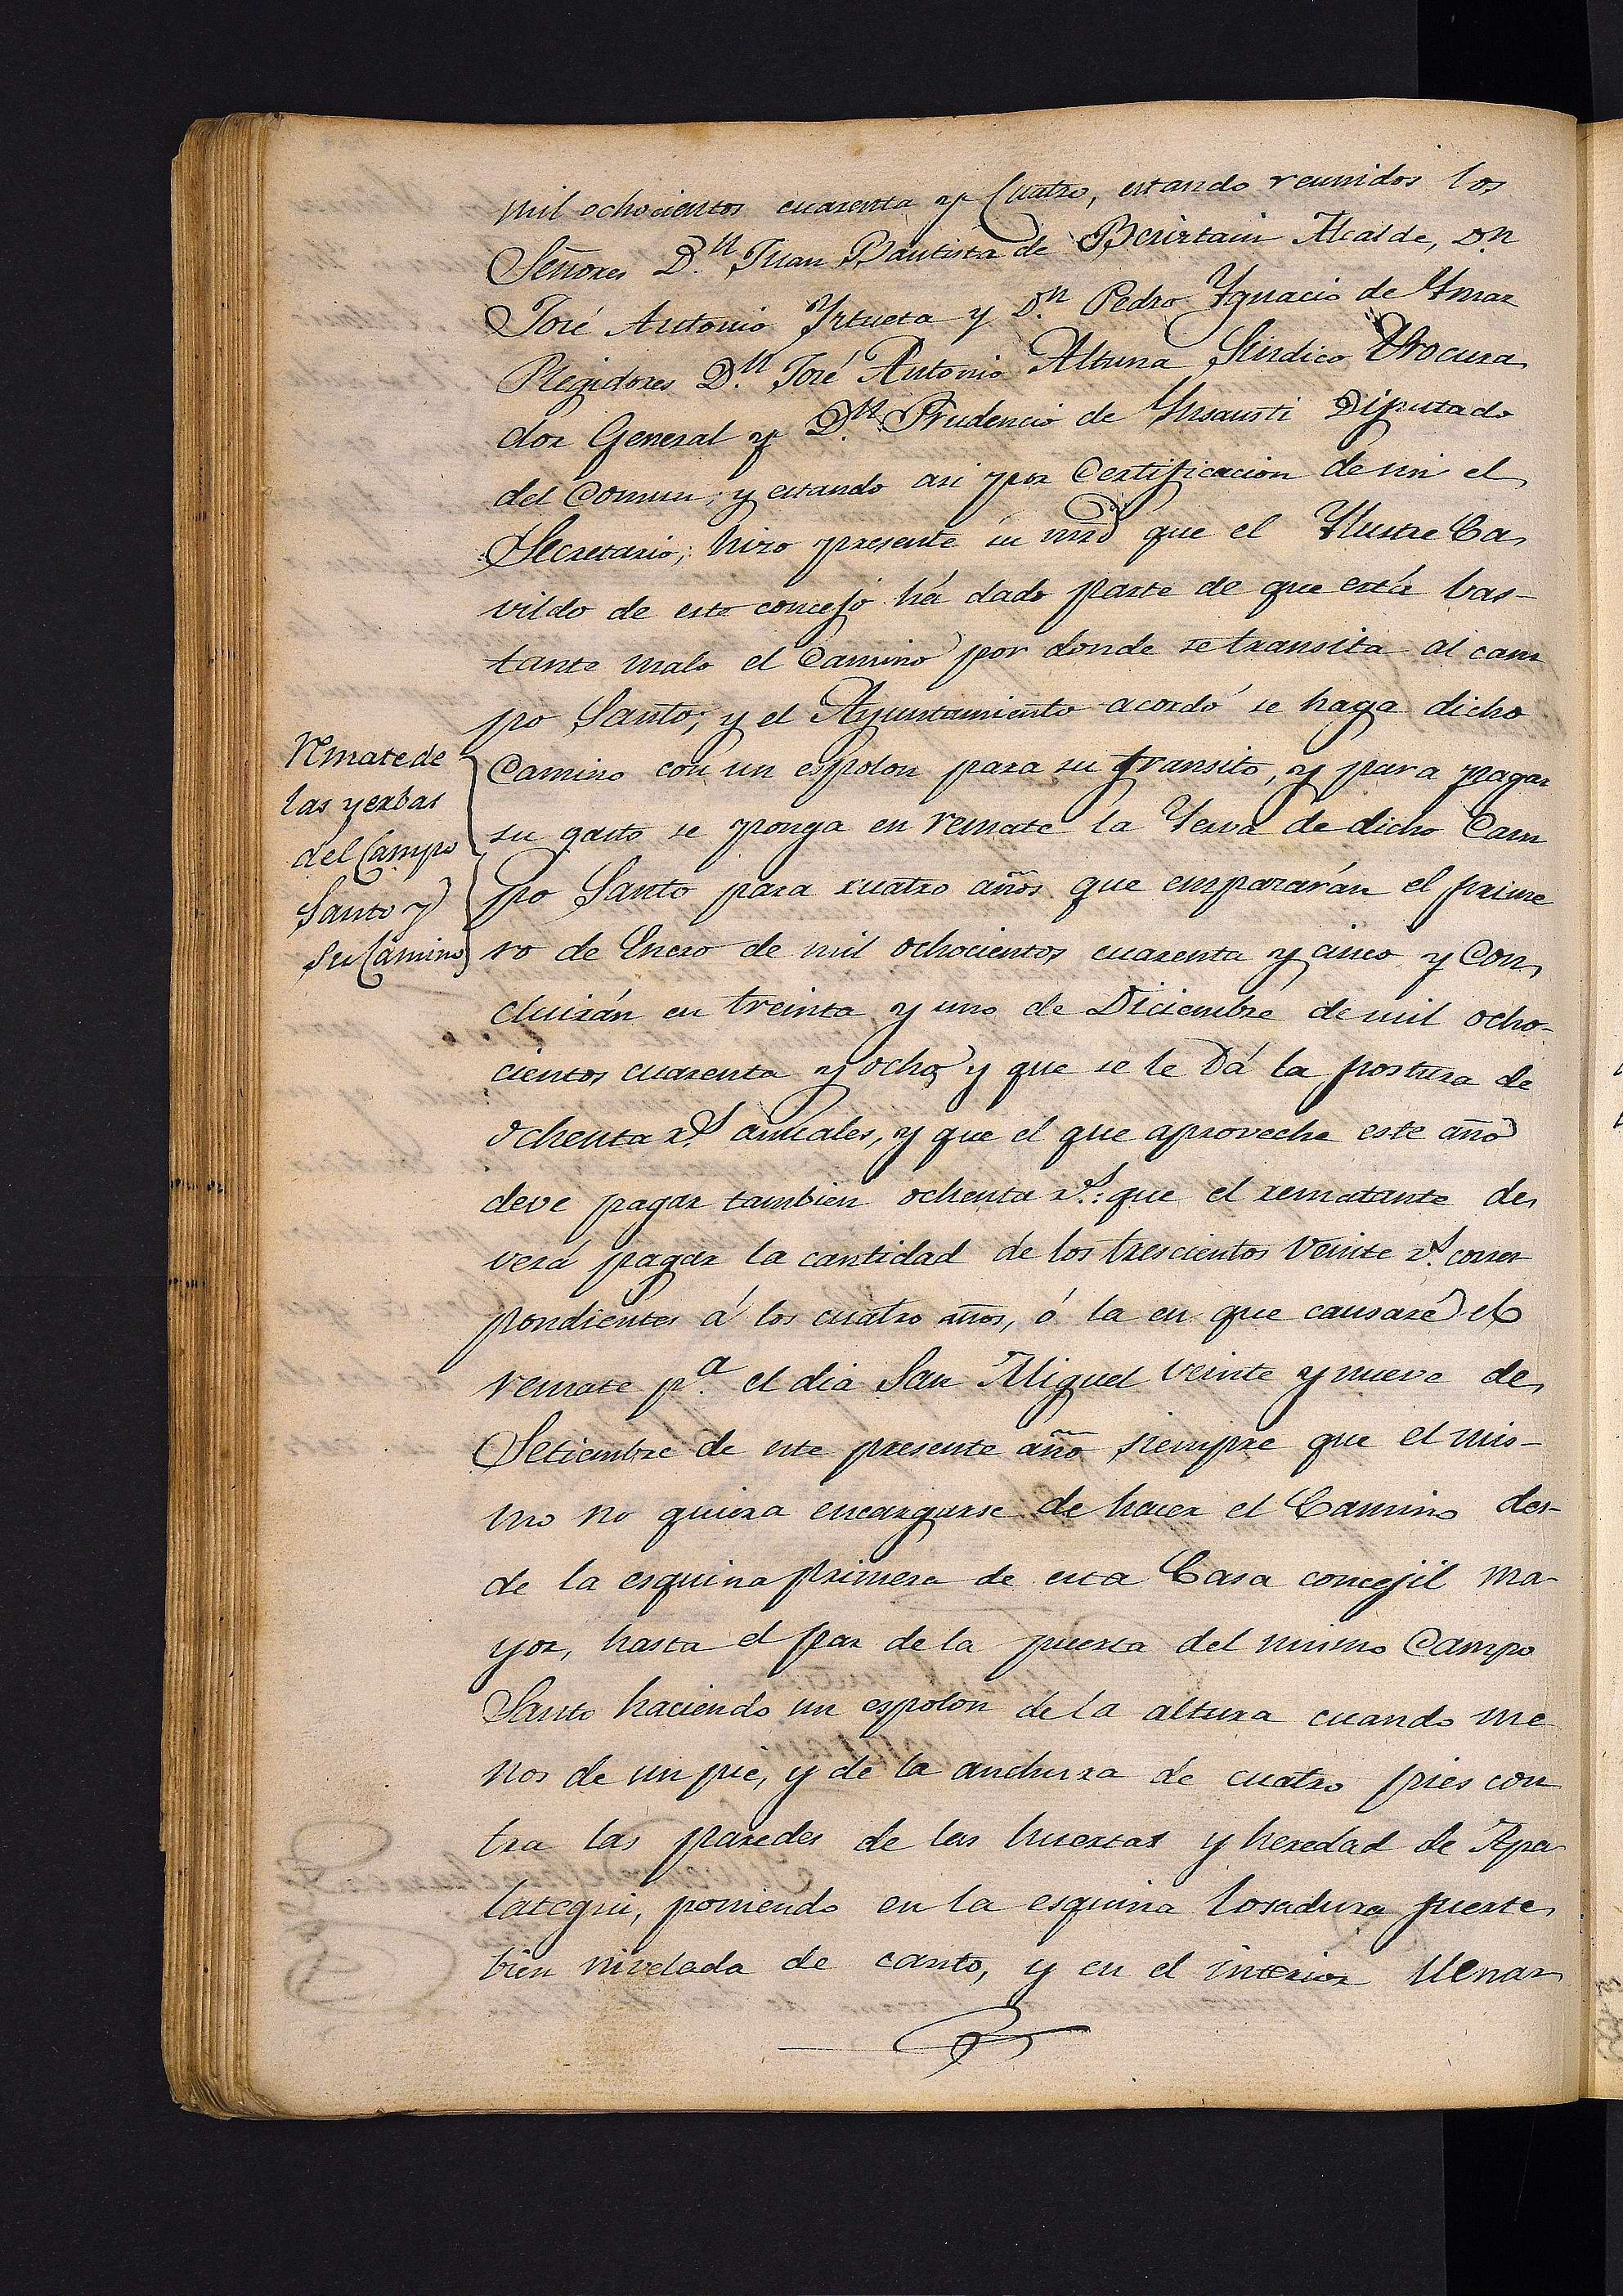 mil ochocientos cuarenta y Cuatro, estando reunidos los
Señores D.n Juan Bautista de Beristain Alcalde, Dn
José Antonio Yrtueta y D.n Pedro Ygnacio de Ymaz
Regidores D.n José Antonio Altuna Sindico Procura
dor General y D.n Prudencio de Ynsausti Diputado
del Comun; y estando asi por Certificacion de mi el
Secretario; hizo presente su mrd que el Ylustre Ca
vildo de este concejo há dado parte de que está bas-
tante malo el Camino por donde se transita al cam
po Santo; y el Ayuntamiento acordó se haga dicho
Camino con un espolon para su transito, y para pagar
su gasto se ponga en remate la Yerva de dicho Cam
po Santo para cuatro años que empezarán el prime
ro de Enero de mil ochocientos cuarenta y cinco y Con
cluirán en treinta y uno de Diciembre de mil ocho-
cientos cuarenta y ocho, y que se le dá la postura de
ochenta r.s anuales, y que el que aproveche este año
deve pagar tambien ochenta r.s: que el rematante de
verá pagar la cantidad de los trescientos veinte r.s corres
pondientes á los cuatro años, ó la en que causare el
remate p.a el dia San Miguel veinte y nueve de
Setiembre de este presente año siempre que el mis-
mo no quiera encargarse de hacer el Camino des-
de la esquina primera de esta Casa concejil ma-
yor, hasta el par de la puerta del mismo Campo
Santo haciendo un espolon de la altura cuando me
nos de un pie, y de la anchura de cuatro pies con
tra las paredes de las huertas y heredad de Apa
lategui, poniendo en la esquina losadura fuerte
bien nivelada de canto, y en el interior llenar
Remate de
las yerbas
del Campo
Santo y
su Camino